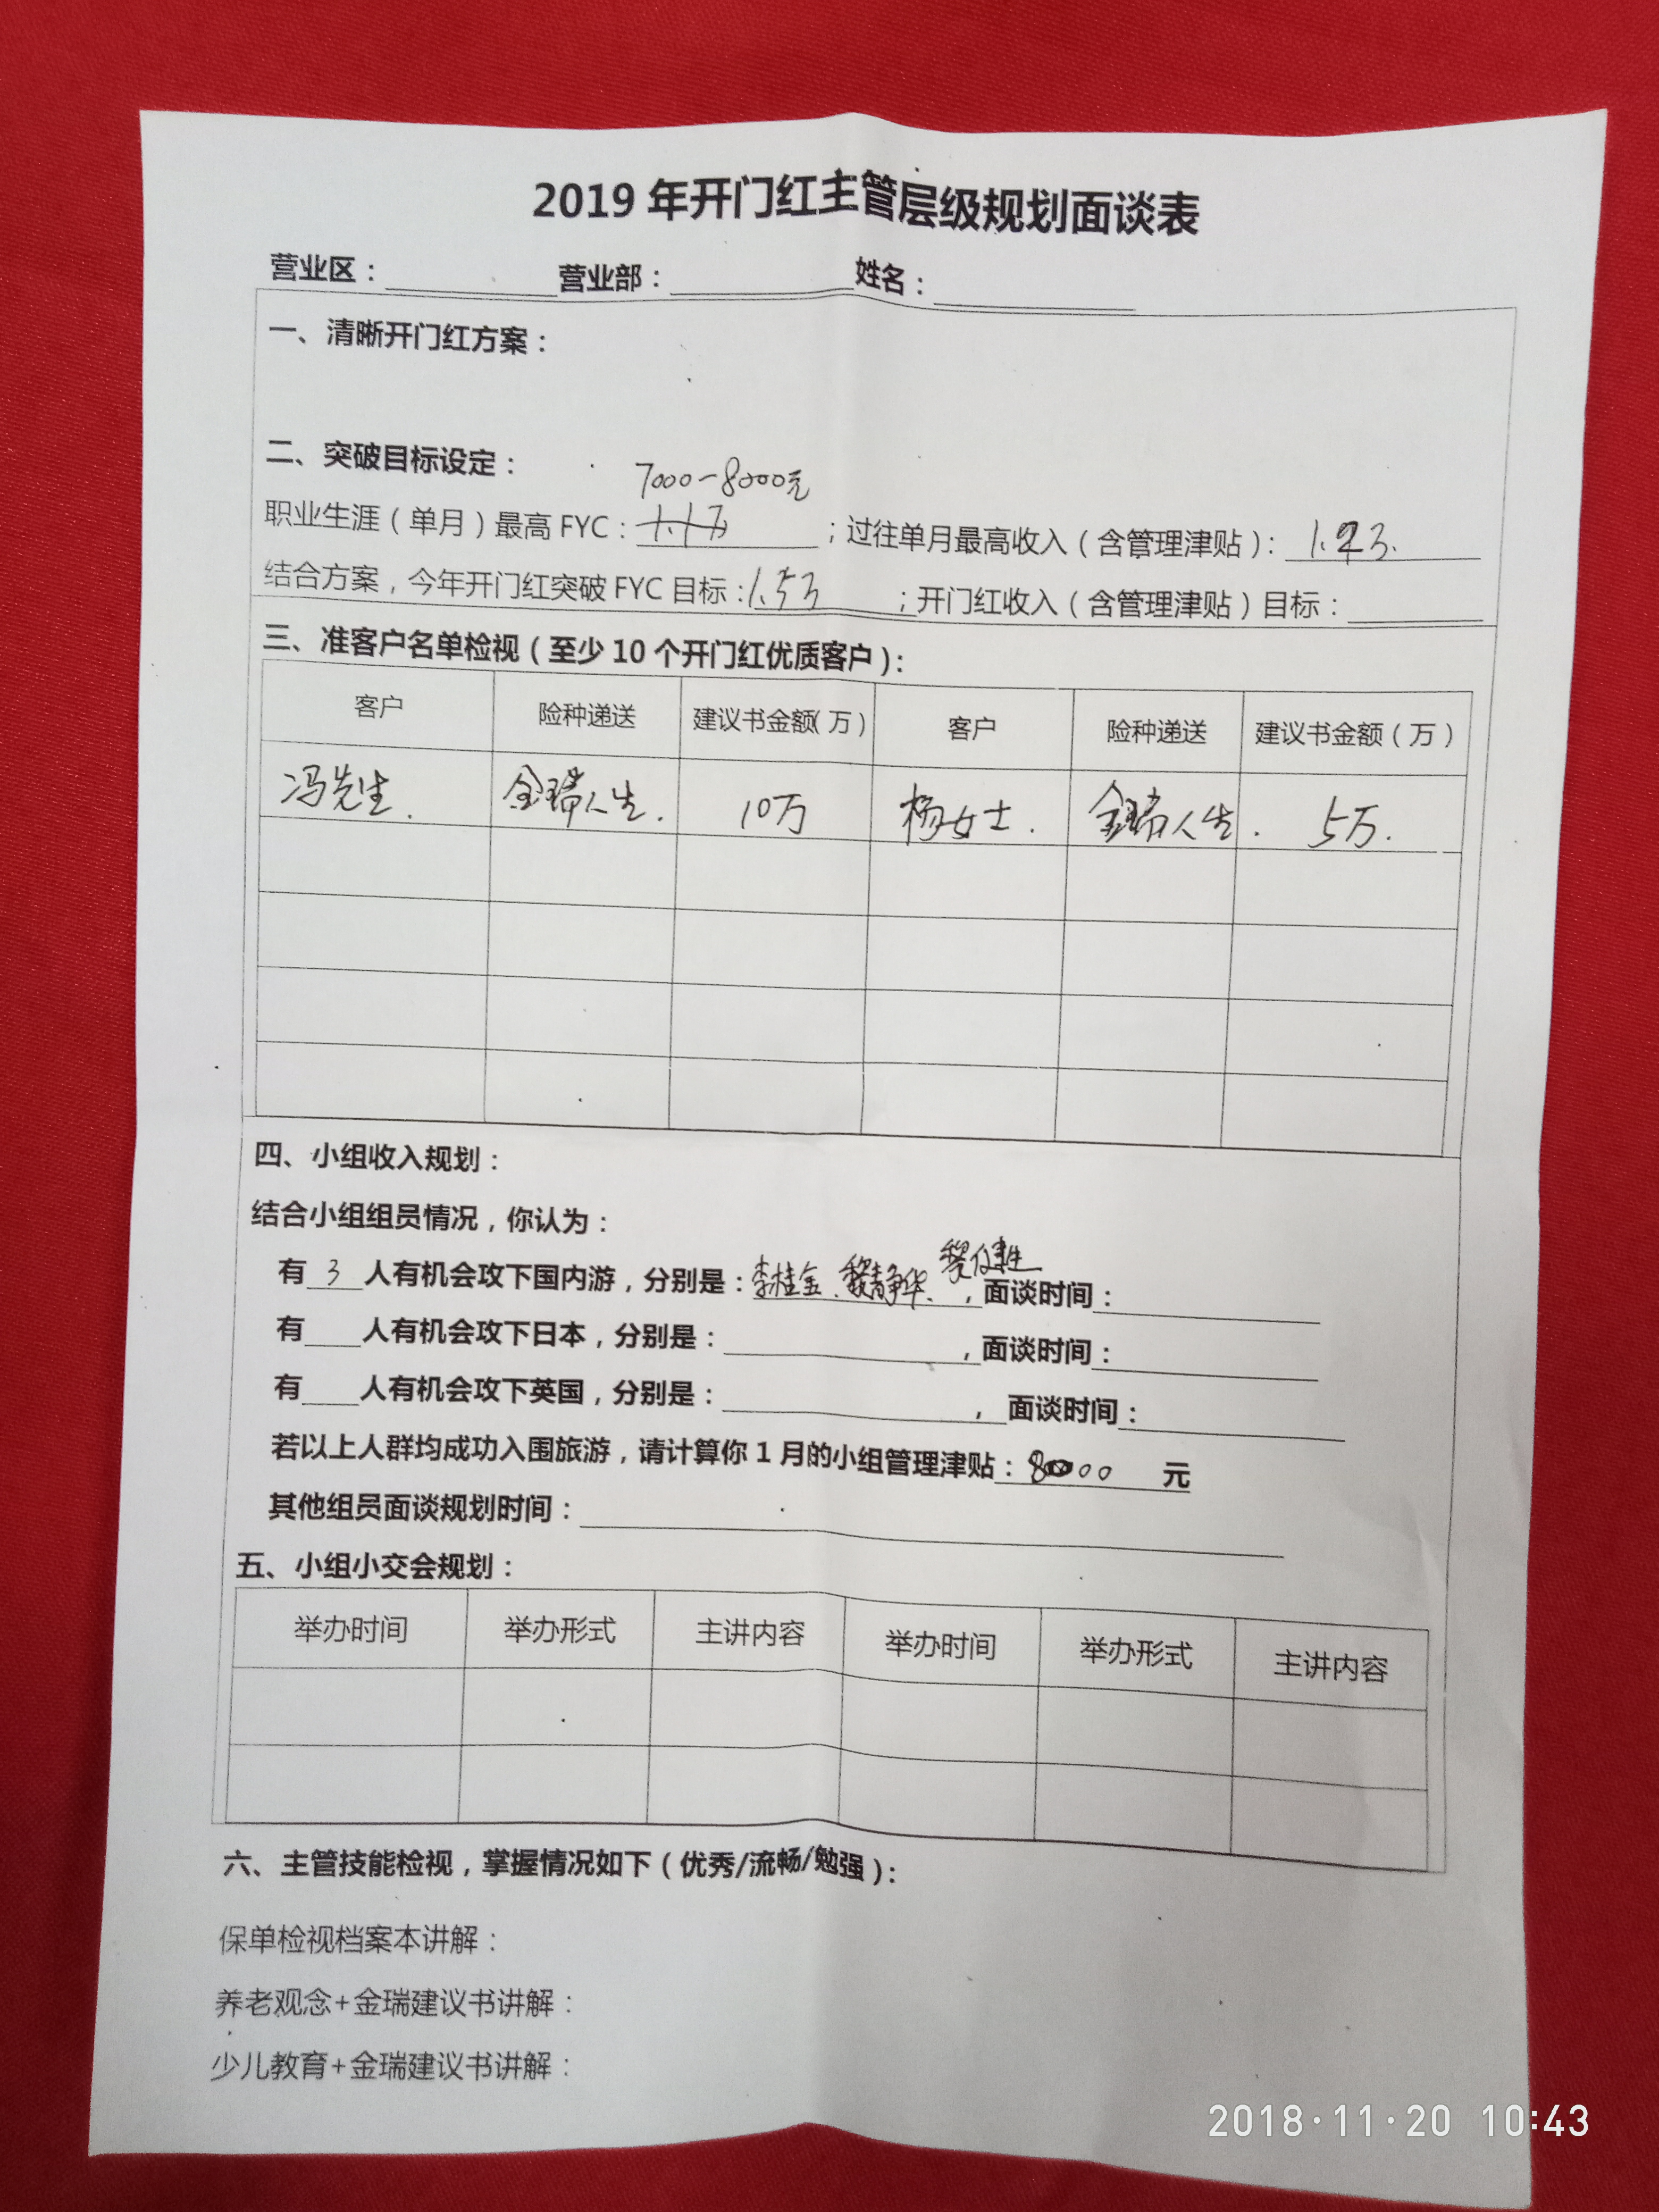 2019 年开门红主管层级规划面谈表
营业区：营业部：姓名：
一、清晰开门红方案：
二、突破目标设定：
7000-8000元
职业生涯（单月）最高 FYC：1.1万；过往单月最高收入（含管理津贴）：
结合方案，今年开门红突破 FYC 目标：1.5万；开门红收入（含管理津贴）目标：
三、准客户名单检视（至少 10 个开门红优质客户）：
客户 险种递送 建议书金额（万） 客户 险种递送 建议书金额（万）
冯先生. 金瑞人生. 10万 杨女士. 金瑞人生. 5万.
四、小组收入规划：
结合小组组员情况，你认为：
有 3 人有机会攻下国内游，分别是：李桂金、黎静华、，面谈时间：
有 人有机会攻下日本，分别是： ，面谈时间：
有 人有机会攻下英国，分别是： ，面谈时间：
若以上人群均成功入围旅游，请计算你 1 月的小组管理津贴： 元
其他组员面谈规划时间：
五、小组小交会规划：
举办时间 举办形式 主讲内容 举办时间 举办形式 主讲内容
六、主管技能检视，掌握情况如下（优秀/流畅/勉强）：
保单检视档案本讲解：
养老观念+金瑞建议书讲解：
少儿教育+金瑞建议书讲解：
2018·11·20 10:43